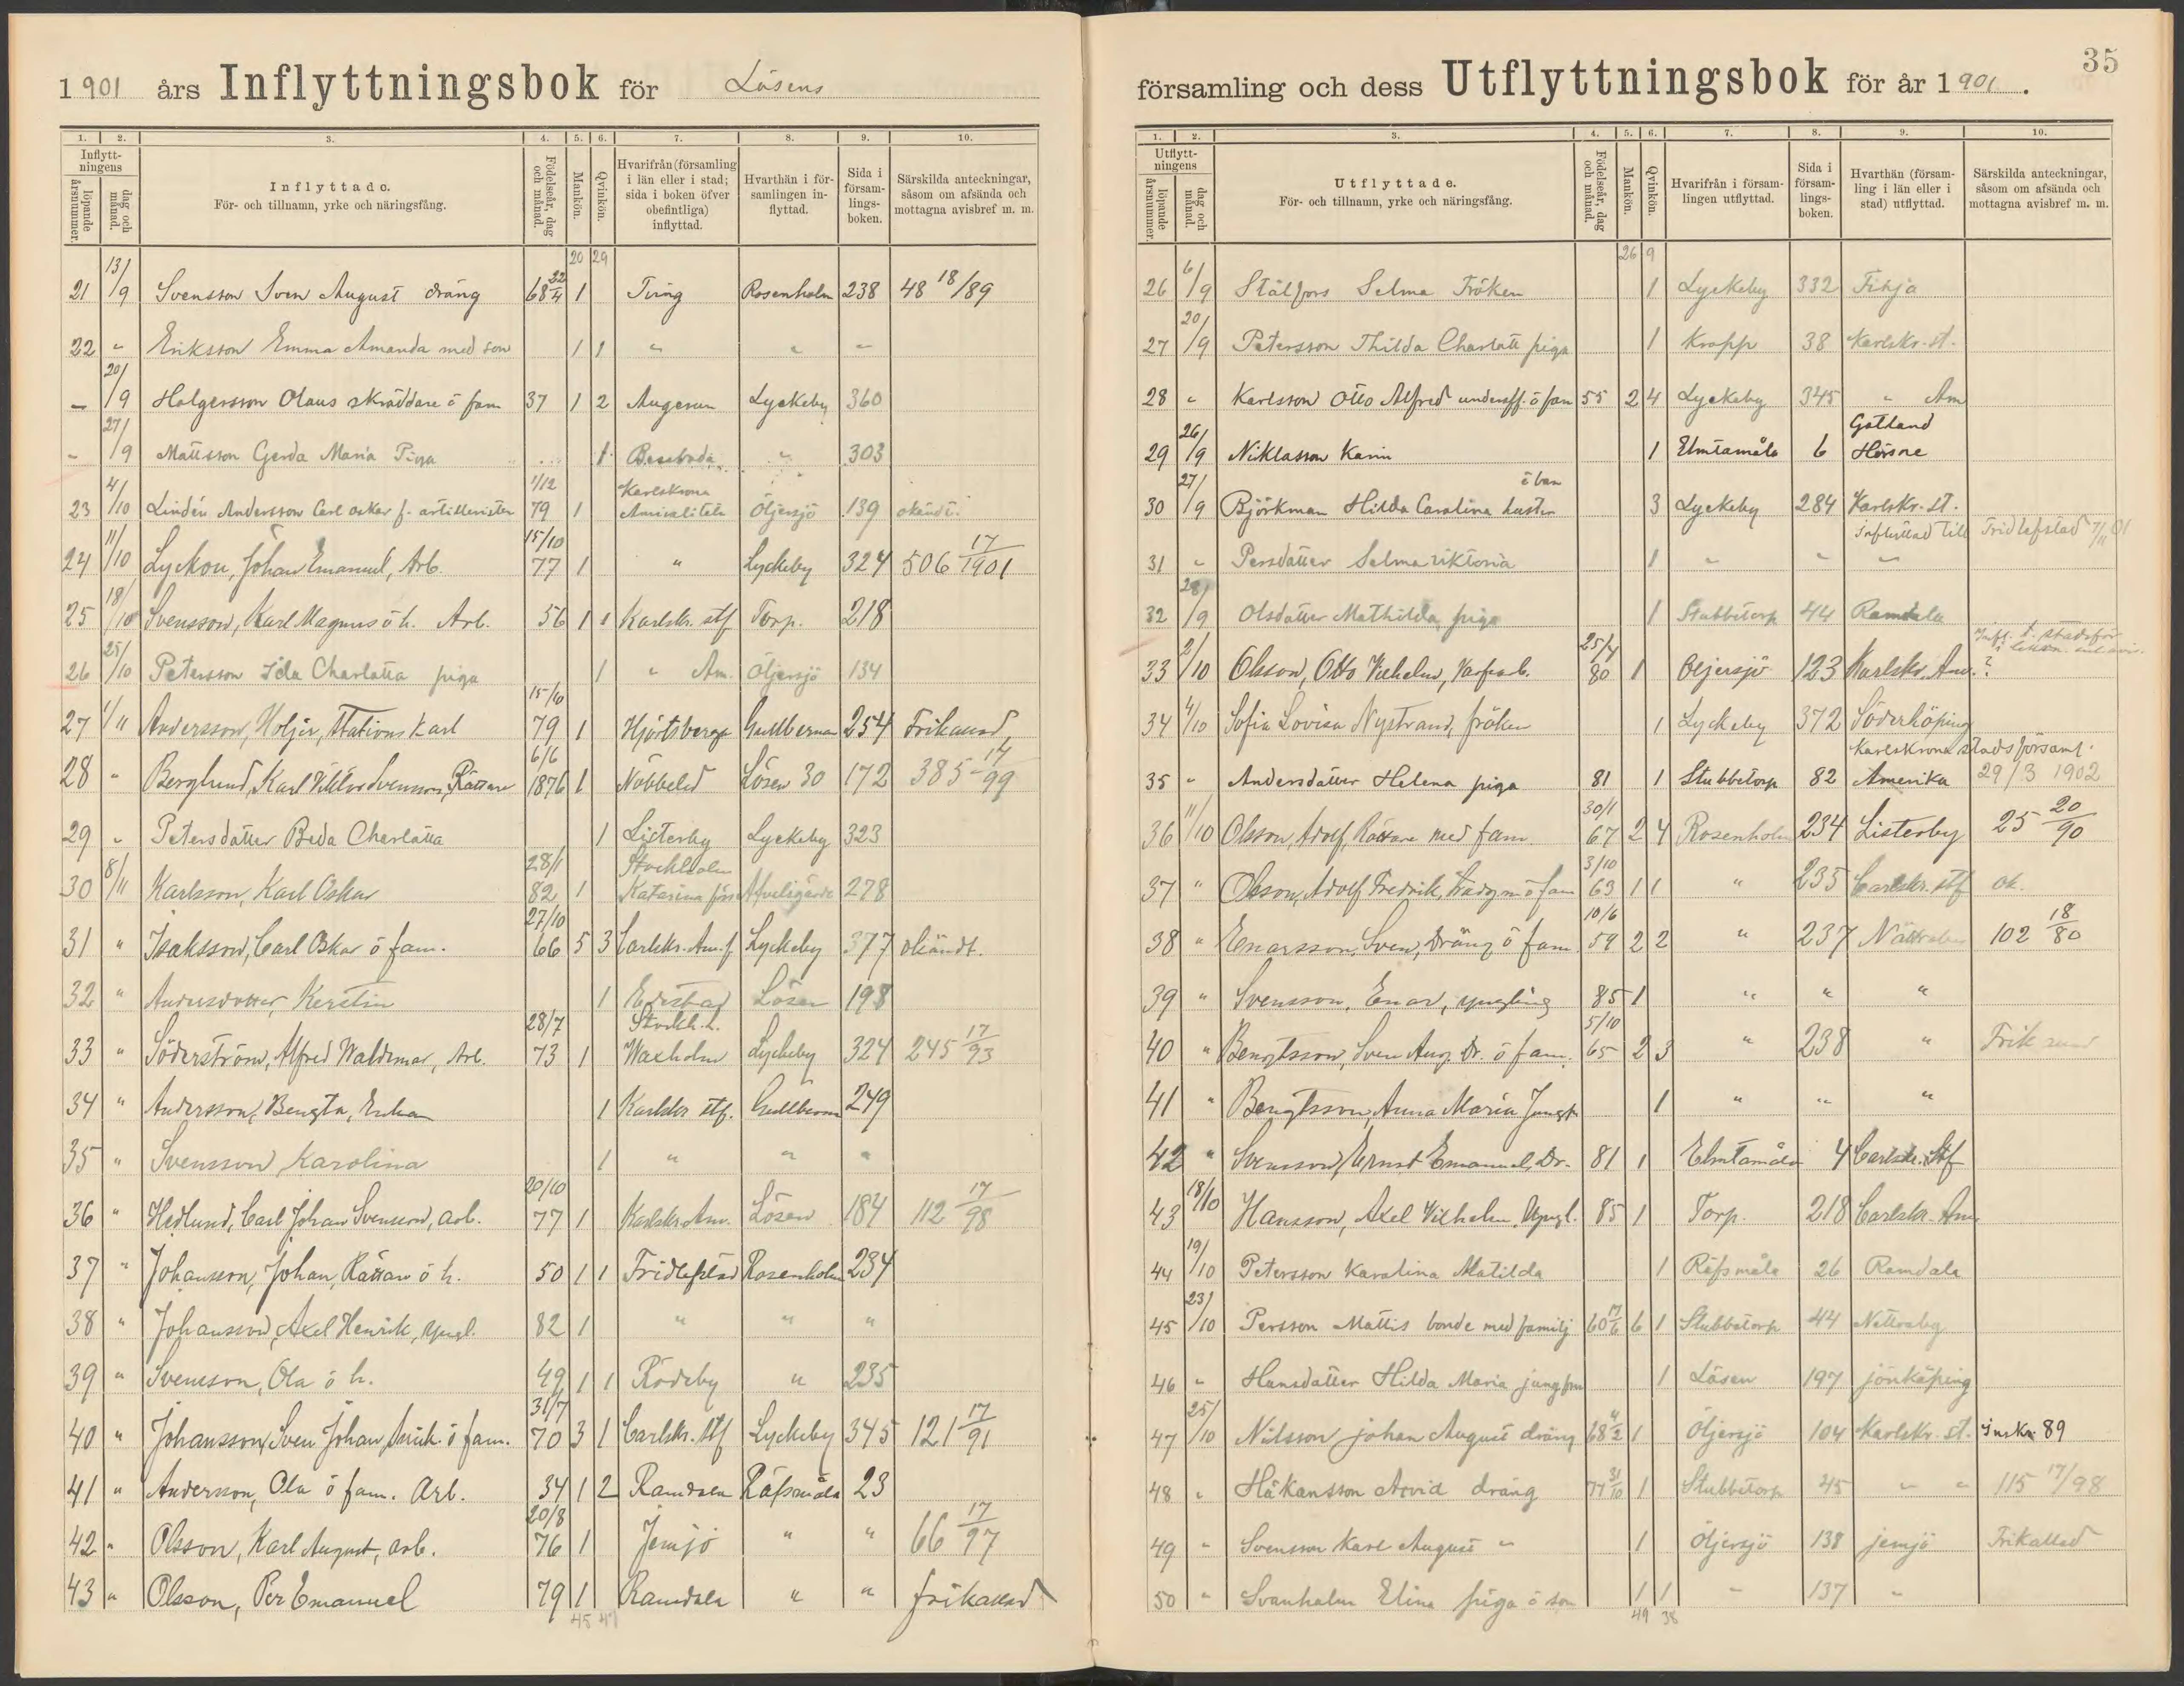 1901 års Inflyttningsbok för Lösens
1. 2. 3. 4. 5. 6. 7. 8. 9. 10.
Inflyttningens löpande årsnummer. dag och månad. Inflyttade. För- och tillnamn, yrke och näringsfång. Födelseår, dag och månad. Mankön. Qvinkön. Hvarifrån (församling i län eller i stad; sida i boken öfver obefintliga) inflyttad. Hvarthän i församlingen inflyttad. Sida i församlingsboken. Särskilda anteckningar, såsom om afsända och mottagna avisbref m. m.
20 29
21 13/9 Svensson Sven August dräng 68 22/4 1 Tving Rosenholm 238 48 18/89
22 " Eriksson Emma Amanda med son 1 1 " " "
– 20/9 Holgersson Olaus skräddare o fam 37 1 2 Augerum Lyckeby 360
– 27/9 Mattsson Gerda Maria Piga 1 " 303
23 4/10 Lindén Andersson Carl Oskar f. artilleristen 1/12 79 1 Karlskrona Amiralitets Öljersjö 139 okändt.
24 11/10 Lyckou, Johan Emanuel, Arb. 15/10 77 1 " Lyckeby 324 506 17/1901
25 18/10 Svensson, Karl Magnus o h. Arb. 56 1 1 Karlskr. stf Torp. 218
26 25/10 Petersson Ida Charlotta piga 1 " Am. Öljersjö 134
27 1/11 Andersson, Holjer, Stations Karl 15/10 79 1 Hjortsberga Gullberna 254 Frikallad
28 " Berglund, Karl Viktor Svensson, Rättare 6/6 1876 1 Nöbbeled Lösen 30 172 385 14/99
29 " Petersdotter Beda Charlotta 1 Listerby Lyckeby 323
30 8/11 Karlsson, Karl Oskar 28/1 82 1 Stockholm Katarina förs 278
31 " Isaksson, Carl Oskar o fam. 27/10 66 5 3 Carlskr. Am. f Lyckeby 377 okändt.
32 " Andersdotter, Kerstin 1 Edestad Lösen 198
33 " Söderström, Alfred Waldemar, Arb. 28/7 73 1 Stockh. l. Waxholm Lyckeby 324 245 17/93
34 " Andersson, Bengta, Enkan 1 Karlskr stf. Gullberna 249
35 " Svensson, Karolina 1 " " "
36 " Hedlund, Carl Johan Svensson, arb. 20/10 77 1 Karlskr Am. Lösen 184 112 17/98
37 " Johansson, Johan, Rättare o h. 50 1 1 Fridlefstad Rosenholm 234
38 " Johansson, Axel Henrik, yngl. 82 1 " " "
39 " Svensson, Ola o h. 49 1 1 Rödeby " 235
40 " Johansson, Sven Johan, o fam. 31/7 70 3 1 Carlskr. stf Lyckeby 345 121 17/91
41 " Andersson, Ola o fam. Arb. 34 1 2 Ramdala Räfsmåla 23
42 " Olsson, Karl August, arb. 20/8 76 1 Jemjö " " 66 17/97
43 " Olsson, Per Emanuel 79 1 Ramdala " " frikallad
45 47
35
församling och dess Utflyttningsbok för år 1901.
1. 2. 3. 4. 5. 6. 7. 8. 9. 10.
Utflyttningens löpande årsnummer. dag och månad. Utflyttade. För- och tillnamn, yrke och näringsfång. Födelseår, dag och månad. Mankön. Qvinkön. Hvarifrån i församlingen utflyttad. Sida i församlingsboken. Hvarthän (församling i län eller i stad) utflyttad. Särskilda anteckningar, såsom om afsända och mottagna avisbref m. m.
26 9
26 6/9 Stålfors Selma Fröken 1 Lyckeby 332 Finja
27 20/9 Petersson Thilda Charlott piga 1 Knapp 38 Karlskr. st.
28 " Karlsson Otto Alfred underoff. o fam 55 2 4 Lyckeby 345 " Am
29 26/9 Niklasson Karin 1 Elmtamåla 6 Gotland Hörsne
30 27/9 Björkman Hilda Carolina hustru o barn 3 Lyckeby 284 Karlskr. st.
31 " Persdotter Selma Viktoria 1 " " " Inflyttad till Fridlefstad 7/11 01
32 28/9 Olsdotter Mathilda piga 1 Stubbetorp 44 Ramdala
33 2/10 Olsson, Otto Vilhelm, Varfsarb. 25/4 80 1 Oljersjö 123 Karlskr. Am. ? Infl. t. stadsför
34 4/10 Sofia Lovisa Nystrand, fröken 1 Lyckeby 372 Söderköping
35 " Andersdotter Helena piga 81 1 Stubbetorp 82 Amerika Karlskrona stadsförsaml. 29/3 1902
36 11/10 Olsson, Adolf, Rättare med fam. 30/1 67 2 4 Rosenholm 234 Listerby 25 20/90
37 " Olsson, Adolf Fredrik, trädgm o fam 3/10 63 1 1 " 235 Carlskr. stf ok.
38 " Enarsson, Sven, Dräng o fam. 10/6 59 2 2 " 237 Nättraby 102 18/80
39 " Svensson, Enar, yngling 85 1 " " "
40 " Bengtsson, Sven Aug. Dr. o fam. 5/10 65 2 3 " 238 " Frik
41 " Bengtsson, Anna Maria Jungfr 1 " " "
42 " Svensson, Ernst Emanuel, Dr. 81 1 Elmtamåla 4 Carlskr. Stf
43 18/10 Hansson, Axel Vilhelm, Yngl. 85 1 Torp. 218 Carlskr. Am
44 19/10 Petersson Karolina Matilda 1 Räfsmåla 26 Ramdala
45 23/10 Persson Mattis bonde med familj 60 17/6 6 1 Stubbetorp 44 Nettraby
46 " Hansdotter Hilda Maria jungfru 1 Lösen 197 jönköping
47 25/10 Nilsson johan August dräng 68 4/2 1 Öljersjö 104 Karlskr. st. Inskr. 89
48 " Håkansson Arvid dräng 77 31/10 1 Stubbetorp 45 " " 115 17/98
49 " Svensson Karl August " 1 Öljersjö 138 jemjö Frikallad
50 " Svanholm Elina piga o son 1 1 " 137 "
49 38